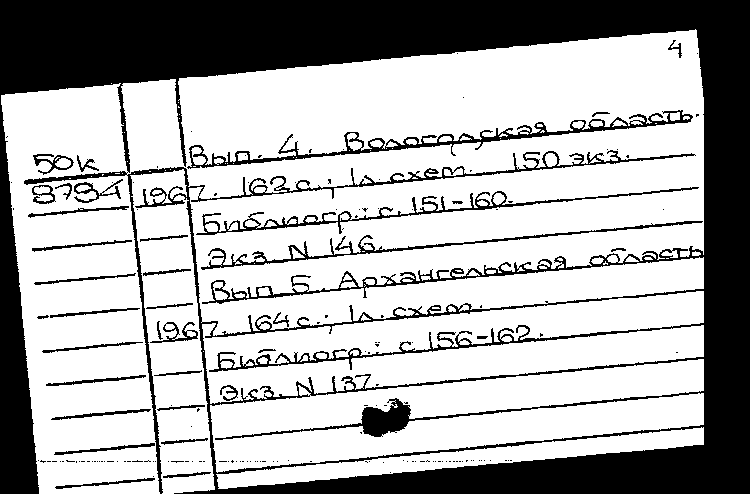 4
50к Вып. 4. Вологодская область.
8784 1967. 162 с.; 1 л. схем. 150 экз.
Библиогр.: с. 151-160.
Экз. N 146.
Вып 5. Архангельская область
1967. 164 с.; 1 л. схем.
Библиогр.: с 156-162.
Экз. N 137.